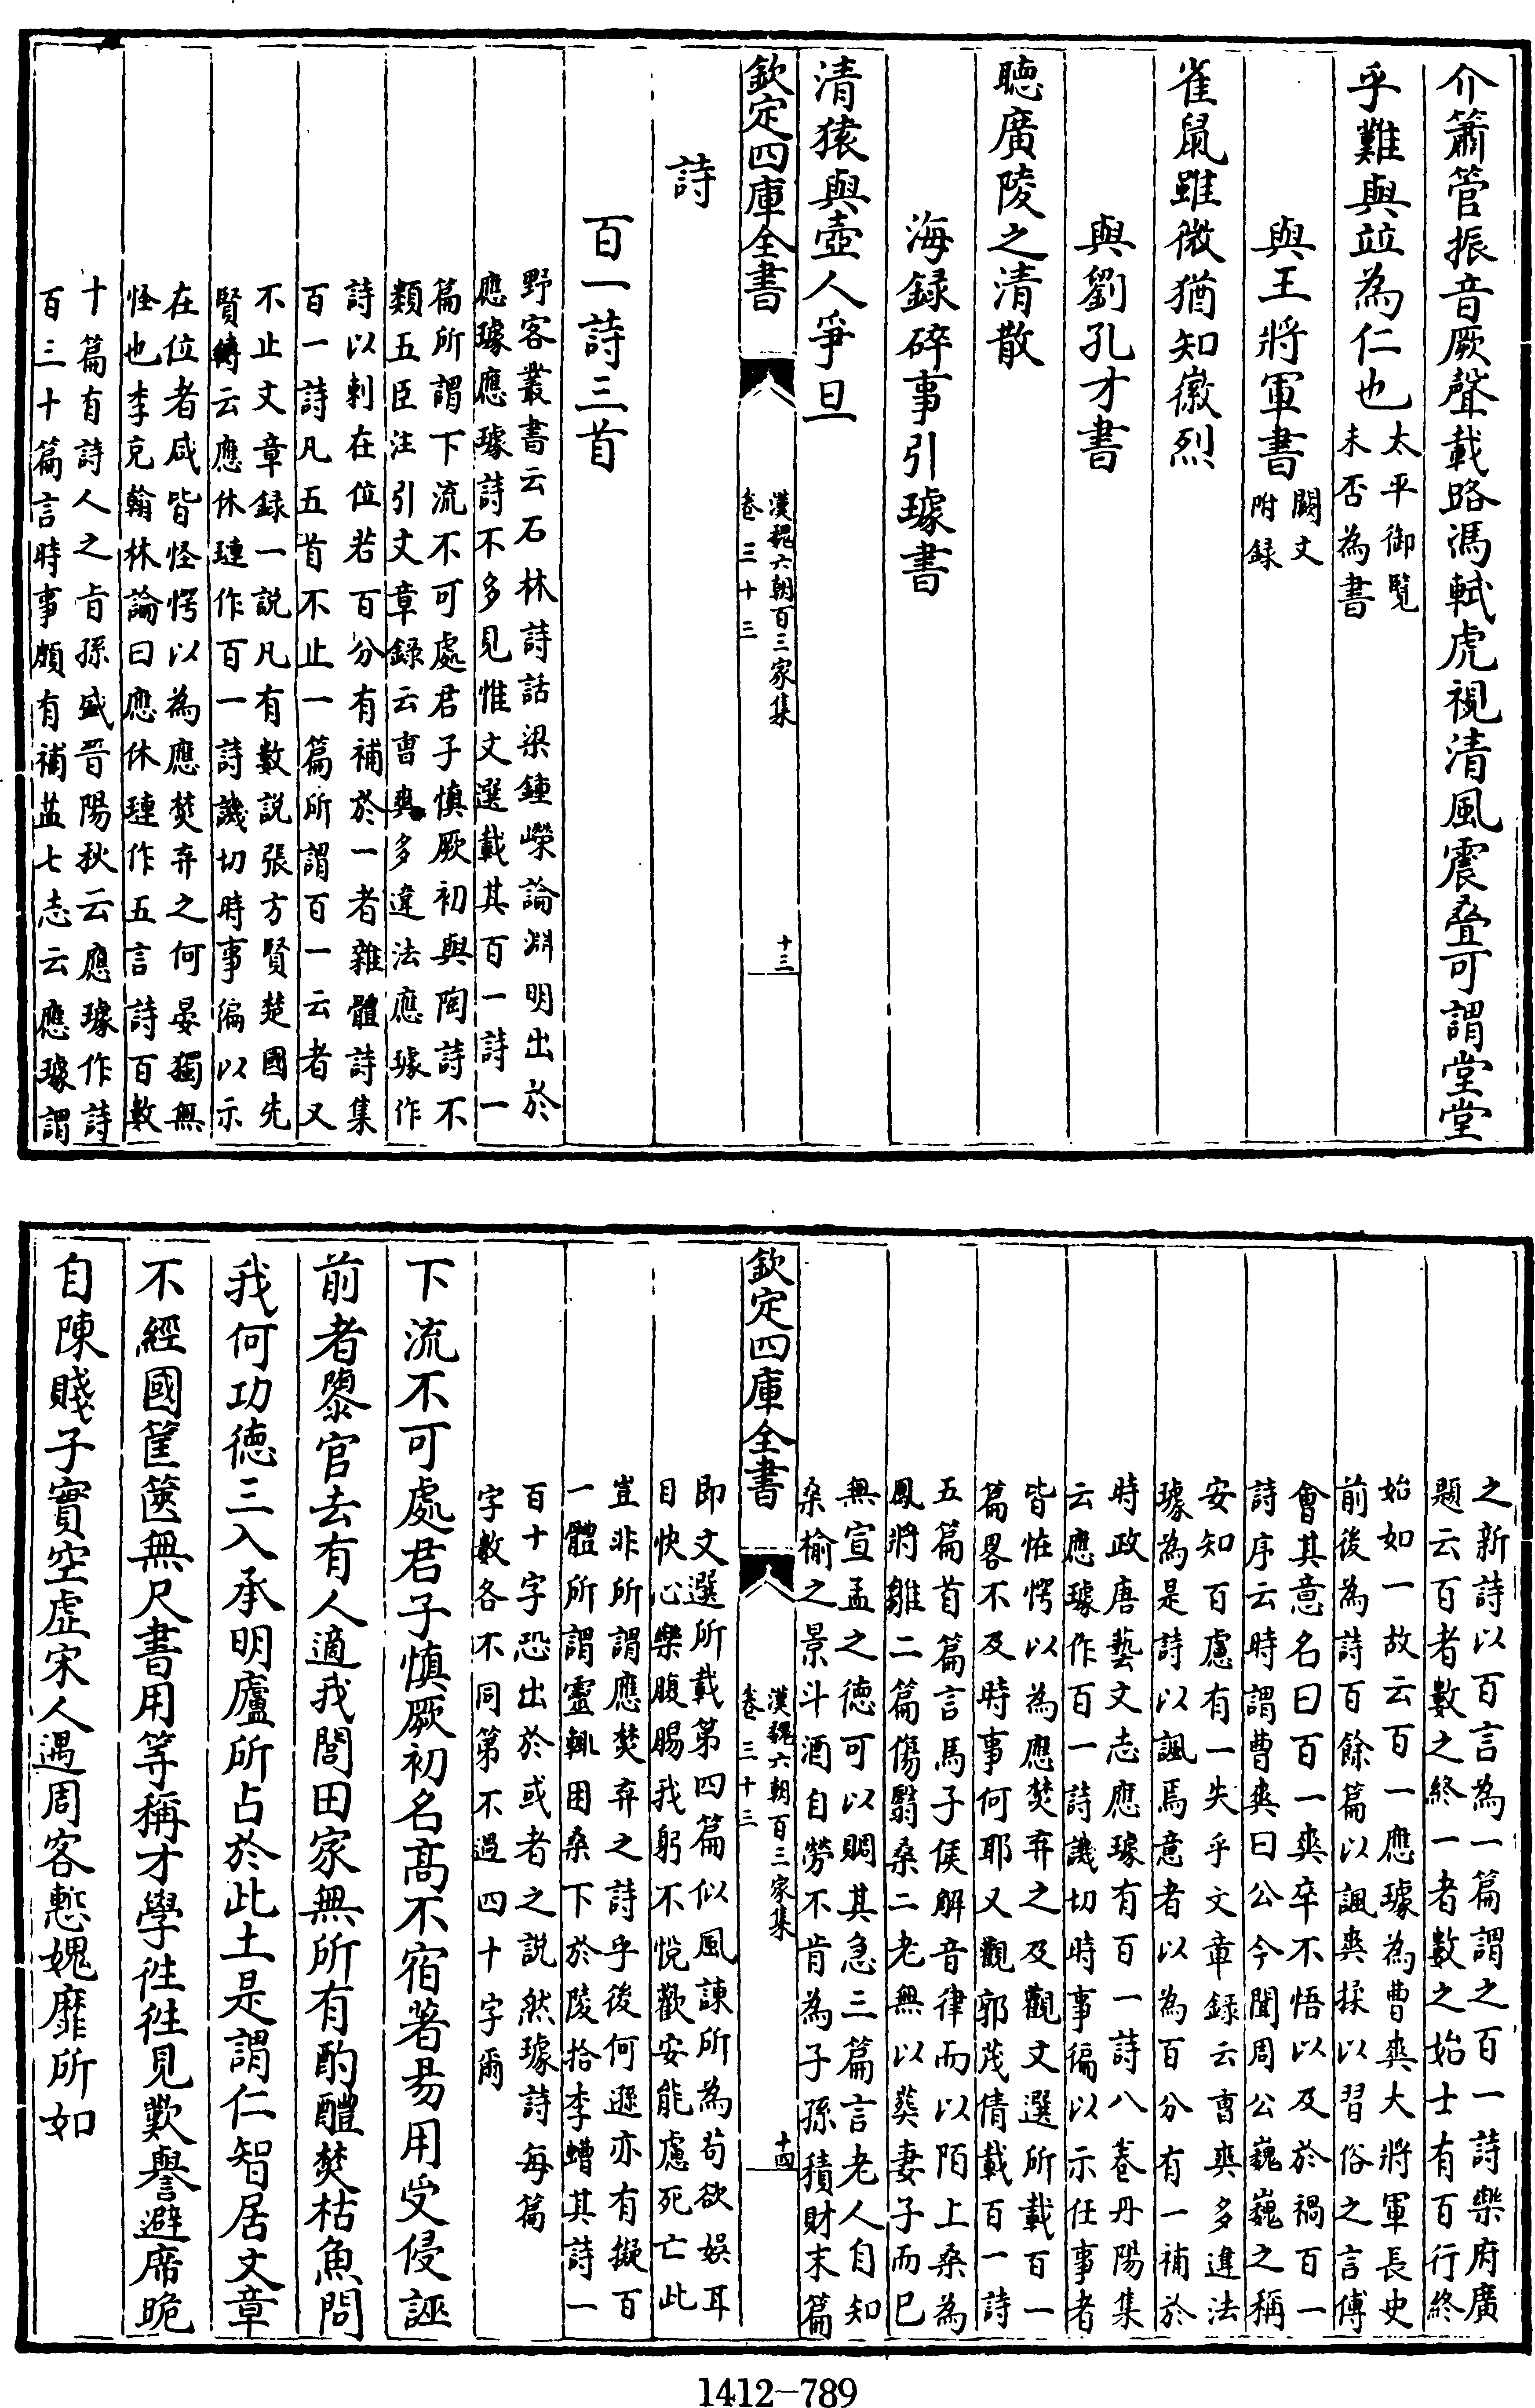 介簫管振音厥聲載路馮軾虎視清風震疊可謂堂堂
乎難與竝為仁也太平御覽
未否為書
與王將軍書闕文
附録
雀鼠雖微猶知徽烈
與劉孔才書
聴廣陵之清散
海録碎事引璩書
清猿與壺人爭旦
欽定四庫全書
漢魏六朝百三家集
卷三十三
十三
詩
百一詩三首
野客叢書云石林詩話梁鍾嶸論淵明出於
應璩應璩詩不多見惟文選載其百一詩一
篇所謂下流不可處君子慎厥初與陶詩不
類五臣注引文章録云曺爽多違法應璩作
詩以刺在位若百分有補於一者雜體詩集
百一詩凡五首不止一篇所謂百一云者又
不止文章録一説凡有數説張方賢楚國先
賢轉云應休璉作百一詩譏切時事徧以示
在位者咸皆怪愕以為應焚弃之何晏獨無
怪也李克翰林論曰應休璉作五言詩百數
十篇有詩人之旨孫盛晋陽秋云應璩作詩
百三十篇言時事頗有補益七志云應璩謂
之新詩以百言為一篇謂之百一詩樂府廣
題云百者數之終一者數之始士有百行終
始如一故云百一應璩為曹爽大將軍長史
前後為詩百餘篇以諷爽揉以習俗之言傅
會其意名曰百一爽卒不悟以及於禍百一
詩序云時謂曹爽曰公今聞周公巍巍之稱
安知百慮有一失乎文章録云曺爽多違法
璩為是詩以諷焉意者以為百分有一補於
時政唐藝文志應璩有百一詩八巻丹陽集
云應璩作百一詩譏切時事徧以示任事者
皆恠愕以為應焚弃之及觀文選所載百一
篇畧不及時事何耶又觀郭茂倩載百一詩
五篇首篇言馬子侯解音律而以陌上桑為
鳳將雛二篇傷翳桑二老無以葬妻子而已
無宣孟之徳可以賙其急三篇言老人自知
桑榆之景斗酒自勞不肯為子孫積財末篇
欽定四庫全書
漢魏六朝百三家集
卷三十三
十四
即文選所載第四篇似風諫所為茍欲娯耳
目快心樂腹腸我躬不悅歡安能慮死亡此
豈非所謂應焚弃之詩乎後何遜亦有擬百
一體所謂靈輒困桑下於陵拾李螬其詩一
百十字恐出於或者之説然璩詩每篇
字數各不同第不過四十字爾
下流不可處君子慎厥初名髙不宿著昜用受侵誣
前者隳官去有人適我閭田家無所有酌醴焚枯魚問
我何功徳三入承明廬所占於此土是謂仁智居文章
不經國筐篋無尺書用等稱才學徃徃見歎譽避席跪
自陳賤子實空虚宋人遇周客慙媿靡所如
1412-789